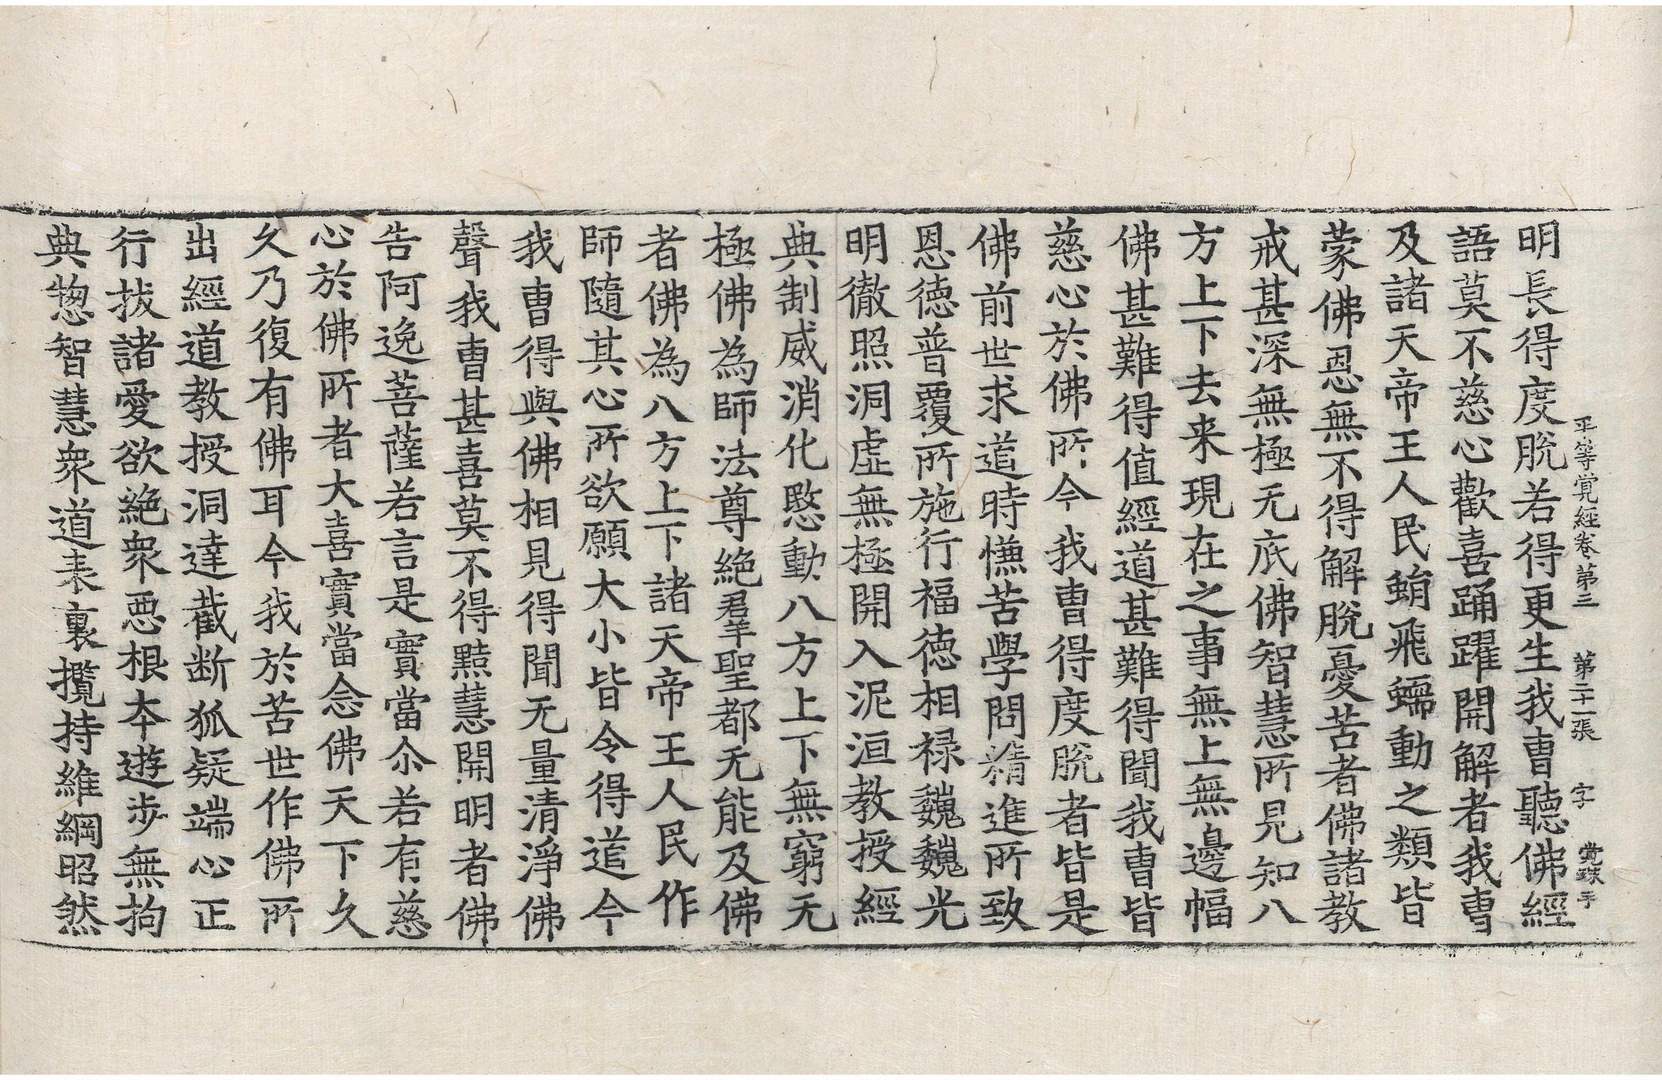 平等覺經卷第三 第二十一張 字号
明長得度脫若得更生我曹聽佛經
語莫不慈心歡喜踊躍開解者我曹
及諸天帝王人民蜎飛蠕動之類皆
蒙佛恩無不得解脫憂苦者佛諸教
戒甚深無極无底佛智慧所見知八
方上下去来現在之事無上無邊幅
佛甚難得值經道甚難得聞我曹皆
慈心於佛所今我曹得度脫者皆是
佛前世求道時慊苦學問精進所致
恩德普覆所施行福德相禄巍巍光
明徹照洞虛無極開入泥洹教授經
典制威消化愍動八方上下無窮无
極佛為師法尊絶羣聖都无能及佛
者佛為八方上下諸天帝王人民作
師隨其心所欲願大小皆令得道今
我曹得與佛相見得聞无量清淨佛
聲我曹甚喜莫不得黠慧開明者佛
告阿逸菩薩若言是實當尒若有慈
心於佛所者大喜實當念佛天下久
久乃復有佛耳今我於苦世作佛所
出經道教授洞達截断狐疑端心正
行拔諸愛欲絶衆惡根本遊步無拘
典惣智慧衆道表裏攬持維綱昭然